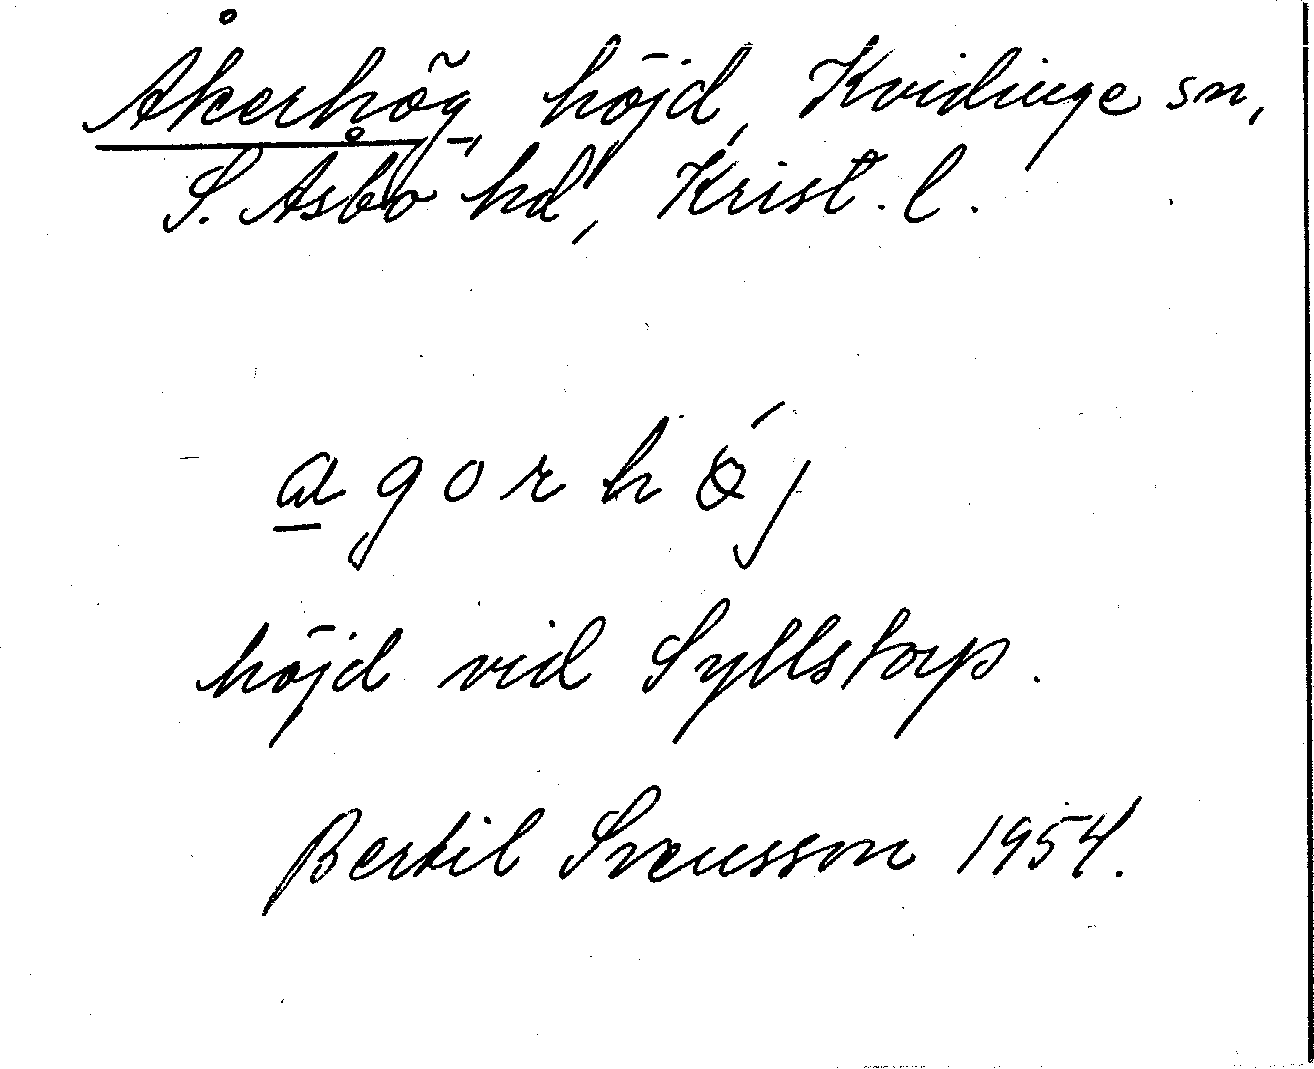 Åkerhög, höjd, Kvidinge sn,
S. Åsbo hd, Krist. l.
a̲gorhǿj
höjd vid Syllstorp.
Bertil Svensson 1954.